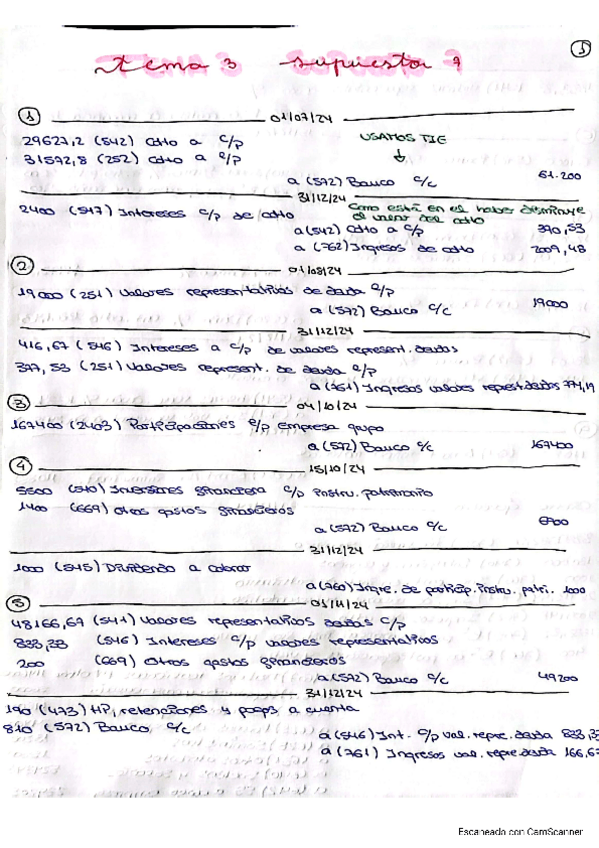 5
Tema 3 supuesto 9
1 01/07/24
29627,2 (542) Cdto a c/p USAMOS TIE
31572,8 (252) Cdto a l/p
a (572) Banco c/c 61.200
31/12/24
2400 (547) Intereses c/p de cdto Como está en el haber disminuye el valor del cdto
a (542) Cdto a c/p 390,53
a (762) Ingresos de cdto 2009,48
2 01/08/24
19000 (251) Valores representativos de deuda l/p
a (572) Banco c/c 19000
31/12/24
416,67 (546) Intereses a c/p de valores represent. deudas
(251) Valores represent. de deuda l/p
a (761) Ingresos valores deudas 774,19
3 04/10/24
167400 (2403) Participaciones l/p empresa grupo
a (572) Banco c/c 167400
4 15/10/24
5500 (540) Inversiones financiera c/p instru. patrimonio
1400 (669) Otros gastos financieros
a (572) Banco c/c
31/12/24
1000 (545) Dividendo a cobrar
a (760) Ingre. de particip. instru. patri. 1000
5
48166,67 (541) Valores representativos deudas c/p
833,33 (546) Intereses c/p valores representativos
200 (669) Otros gastos financieros
a (572) Banco c/c 49200
31/12/24
190 (473) HP, retenciones y pagos a cuenta
810 (572) Banco c/c
a (546) Int. c/p val. repre. deuda 833,33
a (761) Ingresos val. repre deuda 166,67
Escaneado con CamScanner